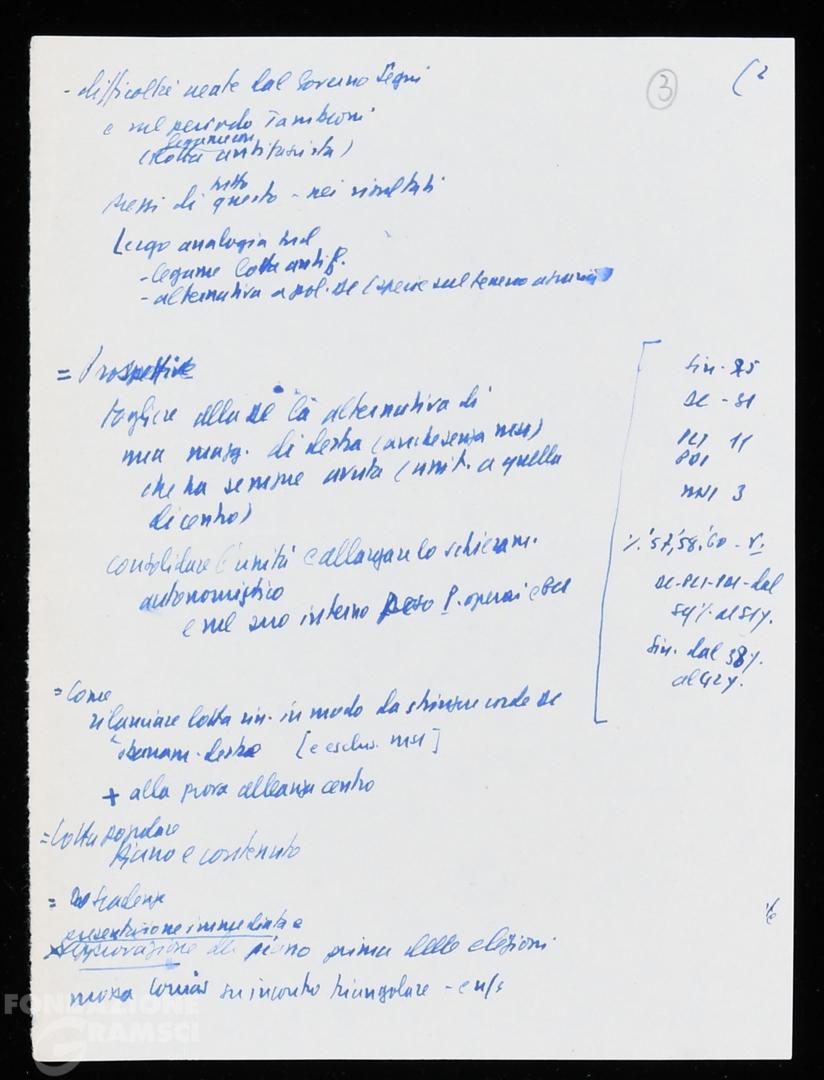 (2
3
- difficoltà create dal Governo Segni
e nel periodo Tambroni
legame con
(lotta antifascista)
tutto
riflessi di questo - nei risultati
- legame lotta antif.
- alternativa a pol. DC (specie sul terreno
= Prospettive
togliere alla DC la alternativa di
una magg. di destra (anche senza MSI)
che ha sempre avuta (unit. a quella
di centro)
consolidare l'unità e allargare lo schieram.
autonomistico
e nel suo interno peso P. operai e PCI
= Come
rilanciare lotta in modo da stringere DC
destra [e esclus. MSI]
+ alla prova alleanza centro
= Lotta popolare
Piano e contenuto
= Scadenze
presentazione immediata e
approvazione del piano prima delle elezioni
mossa Corrias su incontro triangolare -
Sin. 25
DC - 31
PLI 11
PDI
MSI 3
%. '57, '58, '60 - V.
DC-PLI-PDI- dal
54% al 51%.
Sin. dal 38%.
al 42%.
FONDAZIONE
GRAMSCI